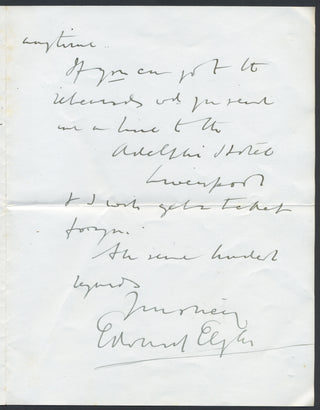 anytime.
If you can get to the
rehearsals wd you send
me a line to the
Adelphi Hotel
Liverpool
& I will get a ticket
for you.
kindest
regards
Yours sincy
Edward Elgar